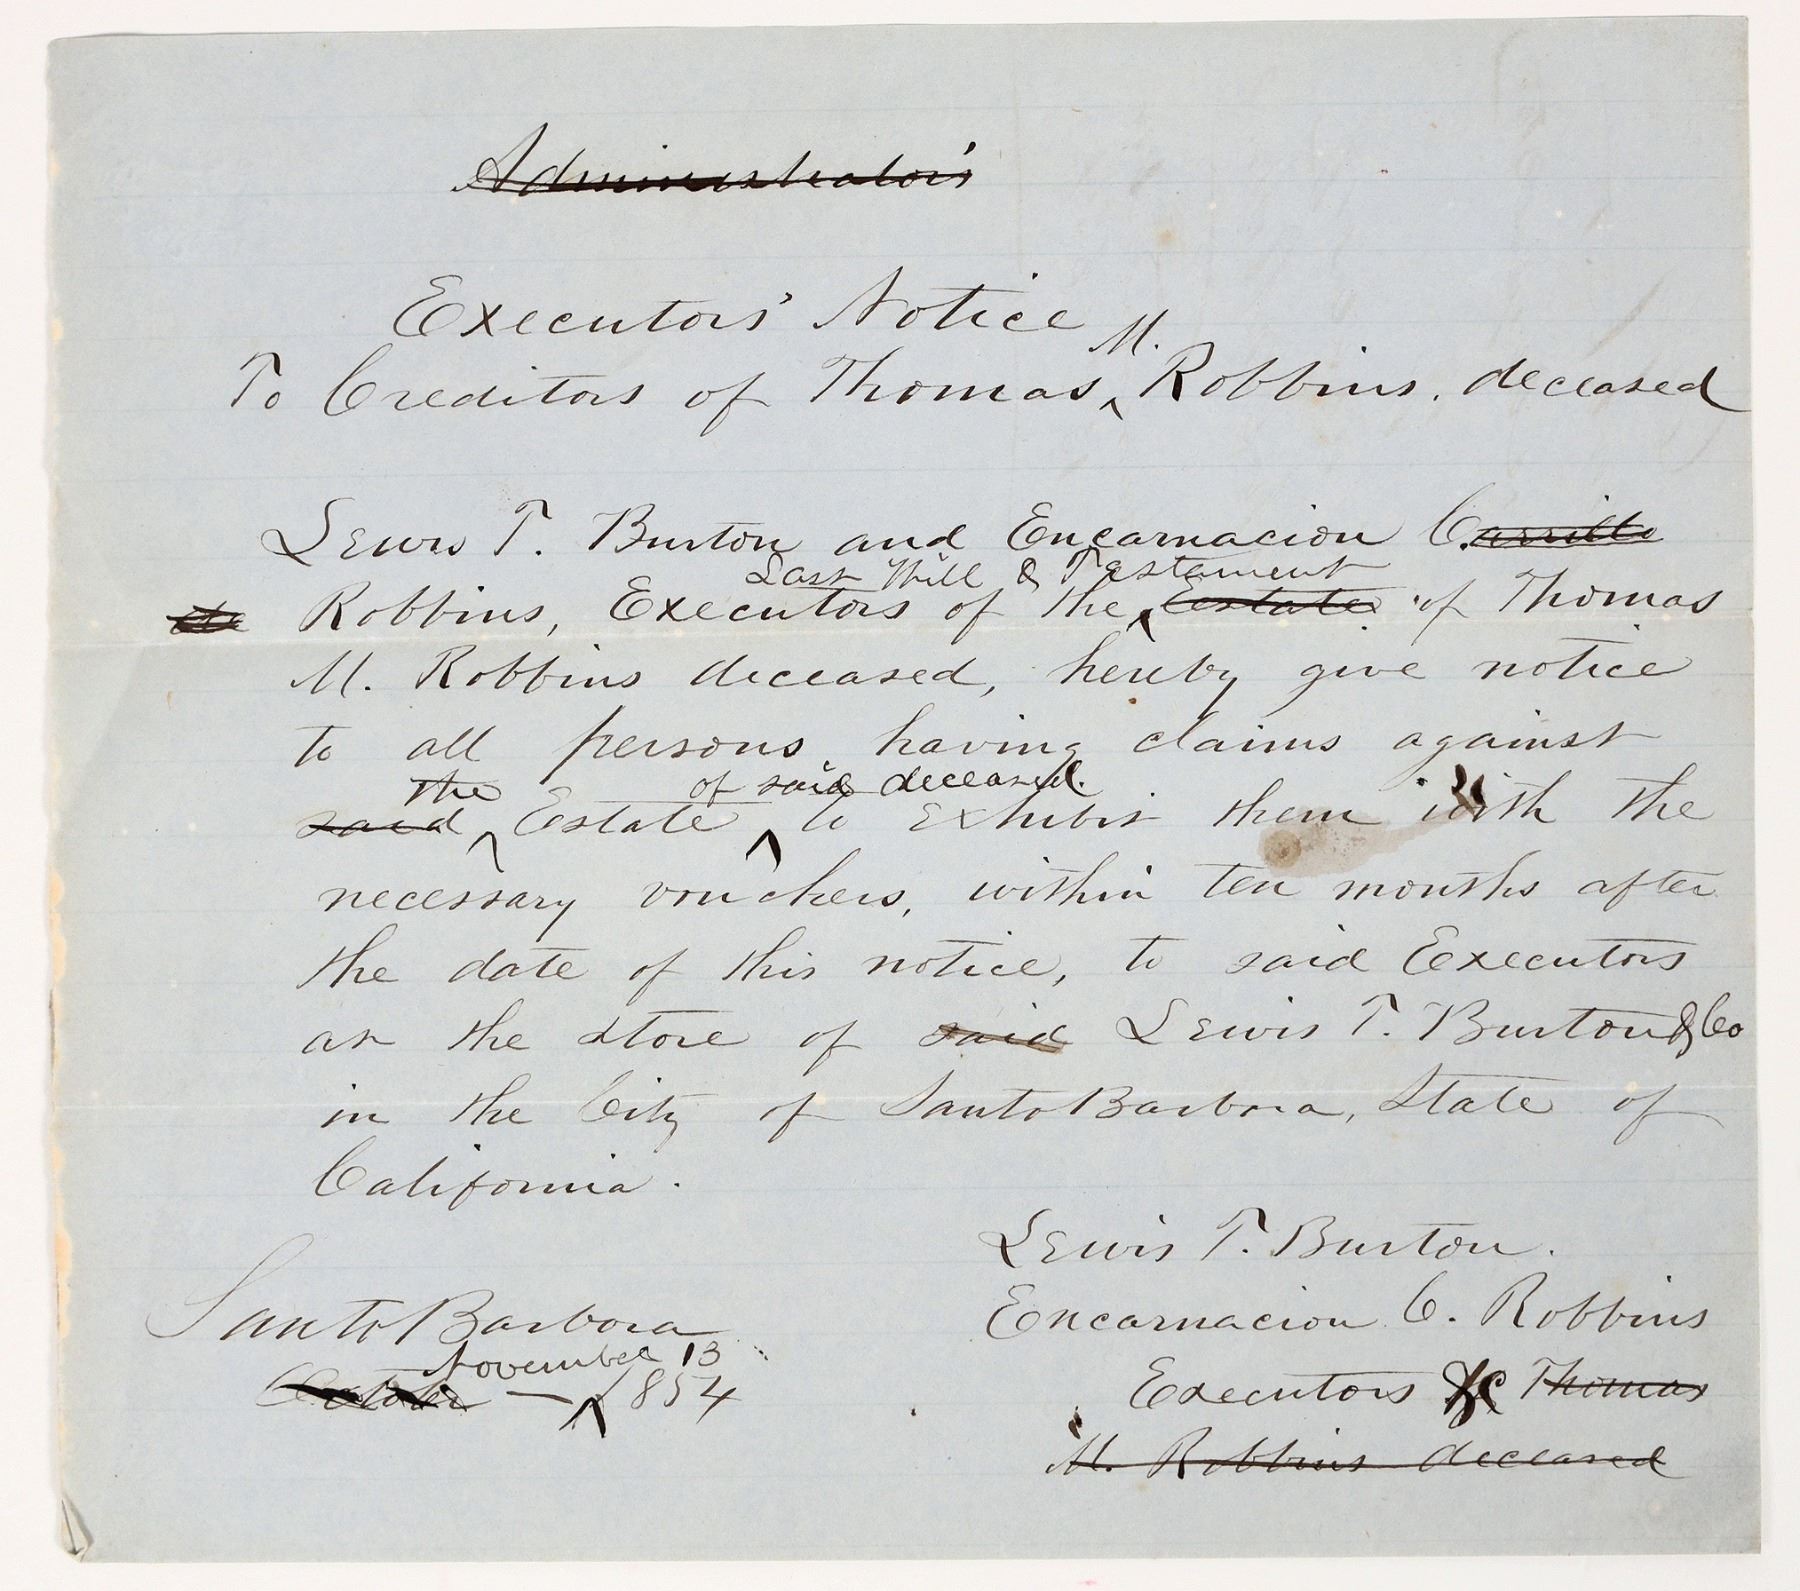 Administrator's
Executors' Notice
M.
To Creditors of Thomas ‸ Robbins. deceased
Lewis T. Burton and Encarnacion C. Carrillo
Last Will & Testament
Robbins, Executors of the ‸ Estate of Thomas
M. Robbins deceased, hereby give notice
to all persons having claims against
the of said deceased.
said ‸ Estate ‸ to exhibit them with the
necessary vouchers, within ten months after
the date of this notice, to said Executors
at the store of said Lewis T. Burton & Co
in the City of Santa Barbara, State of
California.
Lewis T. Burton.
Encarnacion C. Robbins
Executors &c Thomas
M. Robbins deceased
Santa Barbara
November 13
October — ‸ 1854